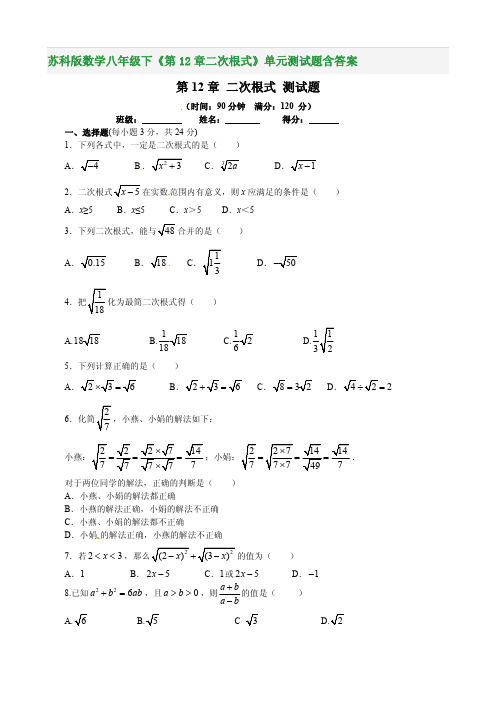 苏科版数学八年级下《第12章二次根式》单元测试题含答案
第12章 二次根式 测试题
(时间：90分钟 满分：120 分)
班级： 姓名： 得分：
一、选择题(每小题3分，共24分)
1．下列各式中，一定是二次根式的是（ ）
A．√-4 B．√(x²+3) C．∛(2a) D．√(x-1)
2．二次根式√(x-5)在实数范围内有意义，则x应满足的条件是（ ）
A．x≥5 B．x≤5 C．x＞5 D．x＜5
3．下列二次根式，能与√48合并的是（ ）
A．√0.15 B．√18 C．√(1 1/3) D．-√50
4．把√(1/18)化为最简二次根式得（ ）
A.18√18 B.1/18 √18 C.1/6 √2 D.1/3 √(1/2)
5．下列计算正确的是（ ）
A．√2×√3=√6 B．√2+√3=√6 C．√8=3√2 D．√4÷√2=2
6．化简√(2/7)，小燕、小娟的解法如下：
小燕：√(2/7)=√2/√7=(√2×√7)/(√7×√7)=√14/7；小娟：√(2/7)=√((2×7)/(7×7))=√14/√49=√14/7．
对于两位同学的解法，正确的判断是（ ）
A．小燕、小娟的解法都正确
B．小燕的解法正确，小娟的解法不正确
C．小燕、小娟的解法都不正确
D．小娟的解法正确，小燕的解法不正确
7．若2<x<3，那么√(2-x)²+√(3-x)²的值为（ ）
A．1 B．2x-5 C．1或2x-5 D．-1
8.已知a²+b²=6ab，且a>b>0，则(a+b)/(a-b)的值是（ ）
A.√6 B.√5 C √3 D.√2